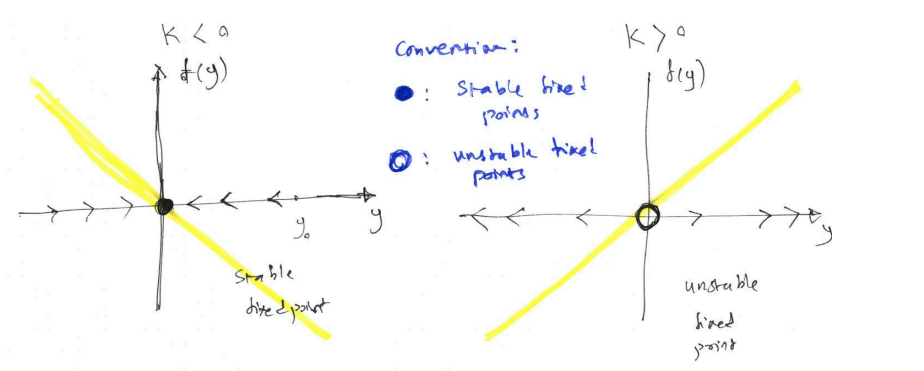 K < 0
f(y)
y₀
y
stable
fixed point
Convention:
: Stable fixed
points
: unstable fixed
points
K > 0
f(y)
y
unstable
fixed
point